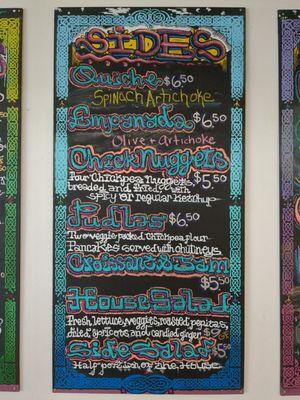 SIDES
Quiche $6.50
Spinach Artichoke
Empanada $6.50
Olive + Artichoke
Chick Nuggets
Four Chickpea Nuggets, $5.50
breaded and fried with
spicy or regular ketchup
Pudlas $6.50
Two veggie packed chickpea flour
Pancakes served with chutneys
Croissant & Jam
$5.50
House Salad
Fresh lettuce, veggies, roasted pepitas,
dried apricots and candied ginger
Side Salad $5.50
Half portion of the House